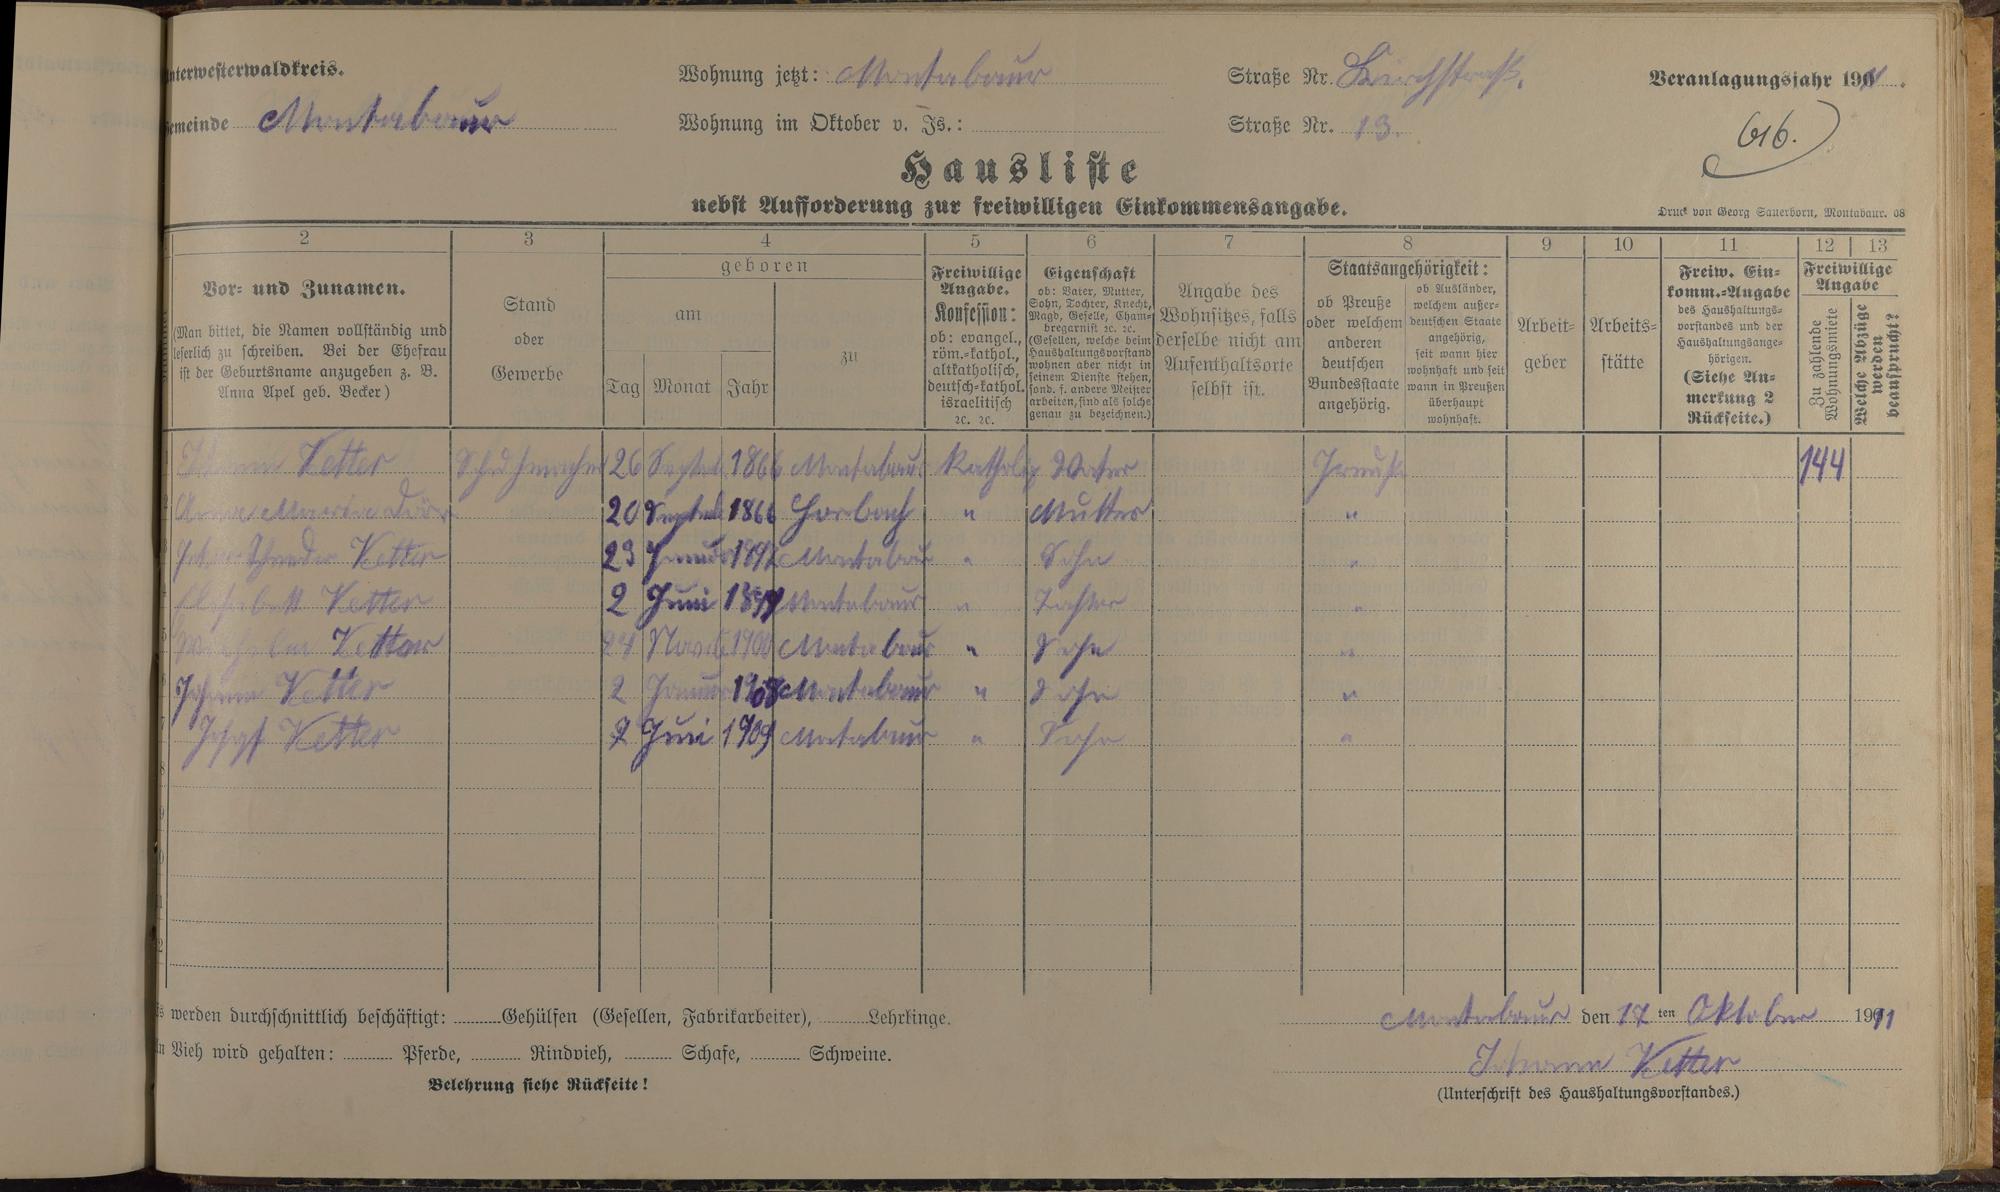 nterwesterwaldkreis.
Wohnung jetzt: Montabaur
Straße Nr. Kirchstraße.
Veranlagungsjahr 1911.
emeinde Montabaur
Wohnung im Oktober v. Js.:
Straße Nr. 13.
616.
Hausliste
nebst Aufforderung zur freiwilligen Einkommensangabe.
Druck von Georg Sauerborn, Montabaur. 08
2 3 4 5 6 7 8 9 10 11 12 13
Vor- und Zunamen.
(Man bittet, die Namen vollständig und
leserlich zu schreiben. Bei der Ehefrau
ist der Geburtsname anzugeben z. B.
Anna Apel geb. Becker)
Stand
oder
Gewerbe
geboren
am
Tag Monat Jahr
zu
Freiwillige
Angabe.
Konfession:
ob: evangel.,
röm.-kathol.,
altkatholisch,
deutsch-kathol.
israelitisch
ꝛc. ꝛc.
Eigenschaft
ob: Vater, Mutter,
Sohn, Tochter, Knecht,
Magd, Geselle, Cham-
bregarnist ꝛc. ꝛc.
(Gesellen, welche beim
Haushaltungsvorstand
wohnen aber nicht in
seinem Dienste stehen,
sond. f. andere Meister
arbeiten, sind als solche
genau zu bezeichnen.)
Angabe des
Wohnsitzes, falls
derselbe nicht am
Aufenthaltsorte
selbst ist.
Staatsangehörigkeit:
ob Preuße
oder welchem
anderen
deutschen
Bundesstaate
angehörig.
ob Ausländer,
welchem außer-
deutschen Staate
angehörig,
seit wann hier
wohnhaft und seit
wann in Preußen
überhaupt
wohnhaft.
Arbeit-
geber
Arbeits-
stätte
Freiw. Ein-
komm.-Angabe
des Haushaltungs-
vorstandes und der
Haushaltungsange-
hörigen.
(Siehe An-
merkung 2
Rückseite.)
Freiwillige
Angabe
Zu zahlende
Wohnungsmiete
Welche Abzüge
werden
beansprucht?
Johann Ketter Schuhmacher 26 Septem 1866 Montabaur Katholig Vater Preuße 144
Anna Maria Dörr 20 Septem 1866 Horbach " Mutter "
Ketter 23 Januar Montabaur " Sohn "
Elisabett Ketter 2 Juni Montabaur " Tochter "
Wilhelm Ketter 24 Novb 1900 Montabaur " Sohn "
Johann Ketter 2 Januar 1908 Montabaur " Sohn "
Josef Ketter 2 Juni 1909 Montabaur " Sohn "
s werden durchschnittlich beschäftigt: Gehülfen (Gesellen, Fabrikarbeiter), Lehrlinge.
Montabaur den 17 ten Oktober 1911
n Vieh wird gehalten: Pferde, Rindvieh, Schafe, Schweine.
Johann Ketter
Belehrung siehe Rückseite!
(Unterschrift des Haushaltungsvorstandes.)